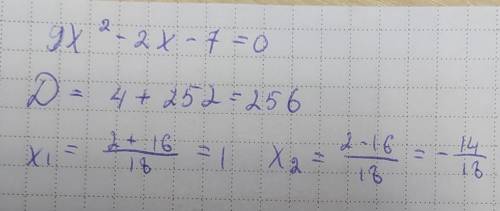 9x² - 2x - 7 = 0
D = 4 + 252 = 256
x₁ = (2 + 16)/18 = 1 x₂ = (2 - 16)/18 = -14/18